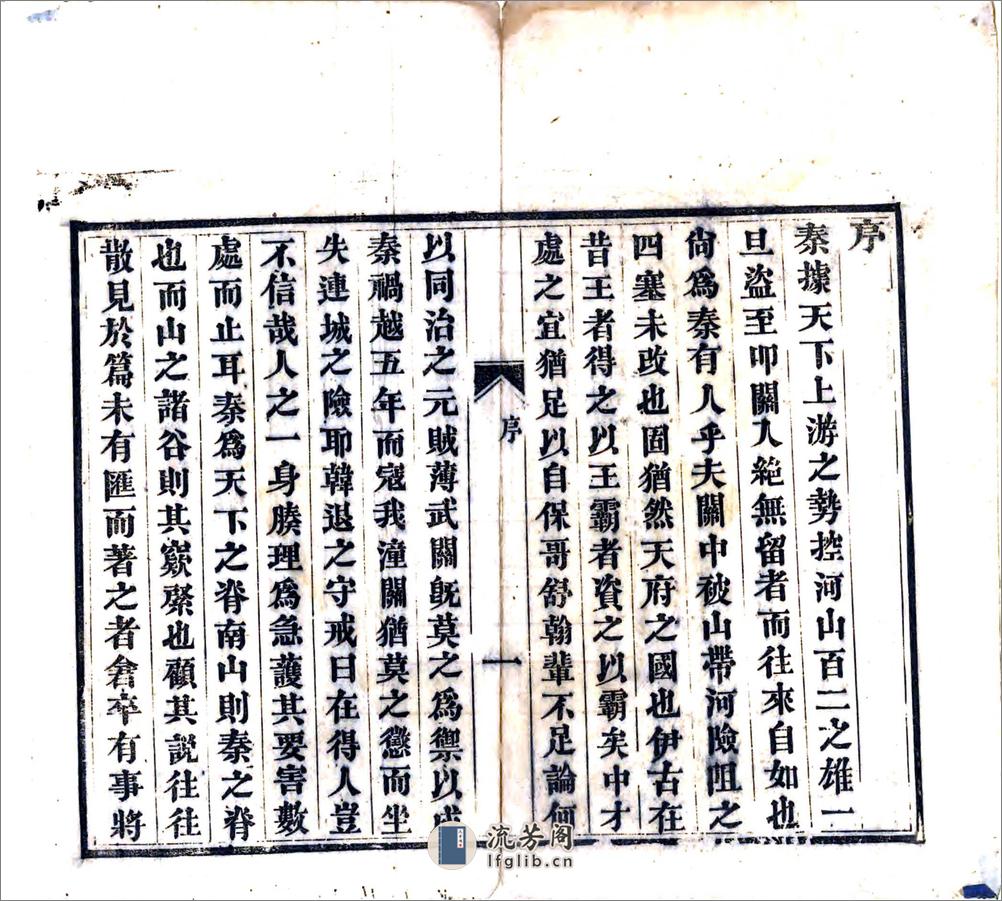 序
秦據天下上游之勢控河山百二之雄一
旦盜至叩關入絕無留者而往來自如也
尙爲秦有人乎夫關中被山帶河險阻之
四塞未改也固猶然天府之國也伊古在
昔王者得之以王霸者資之以霸矣中才
處之宜猶足以自保哥舒翰輩不足論何
序
一
以同治之元賊薄武關旣莫之爲禦以成
秦禍越五年而寇我潼關猶莫之懲而坐
失連城之險耶韓退之守戒曰在得人豈
不信哉人之一身腠理爲急護其要害數
處而止耳秦爲天下之脊南山則秦之脊
也而山之諸谷則其窾綮也顧其説往往
散見於篇未有匯而著之者倉卒有事將
流芳阁
lfglib.cn